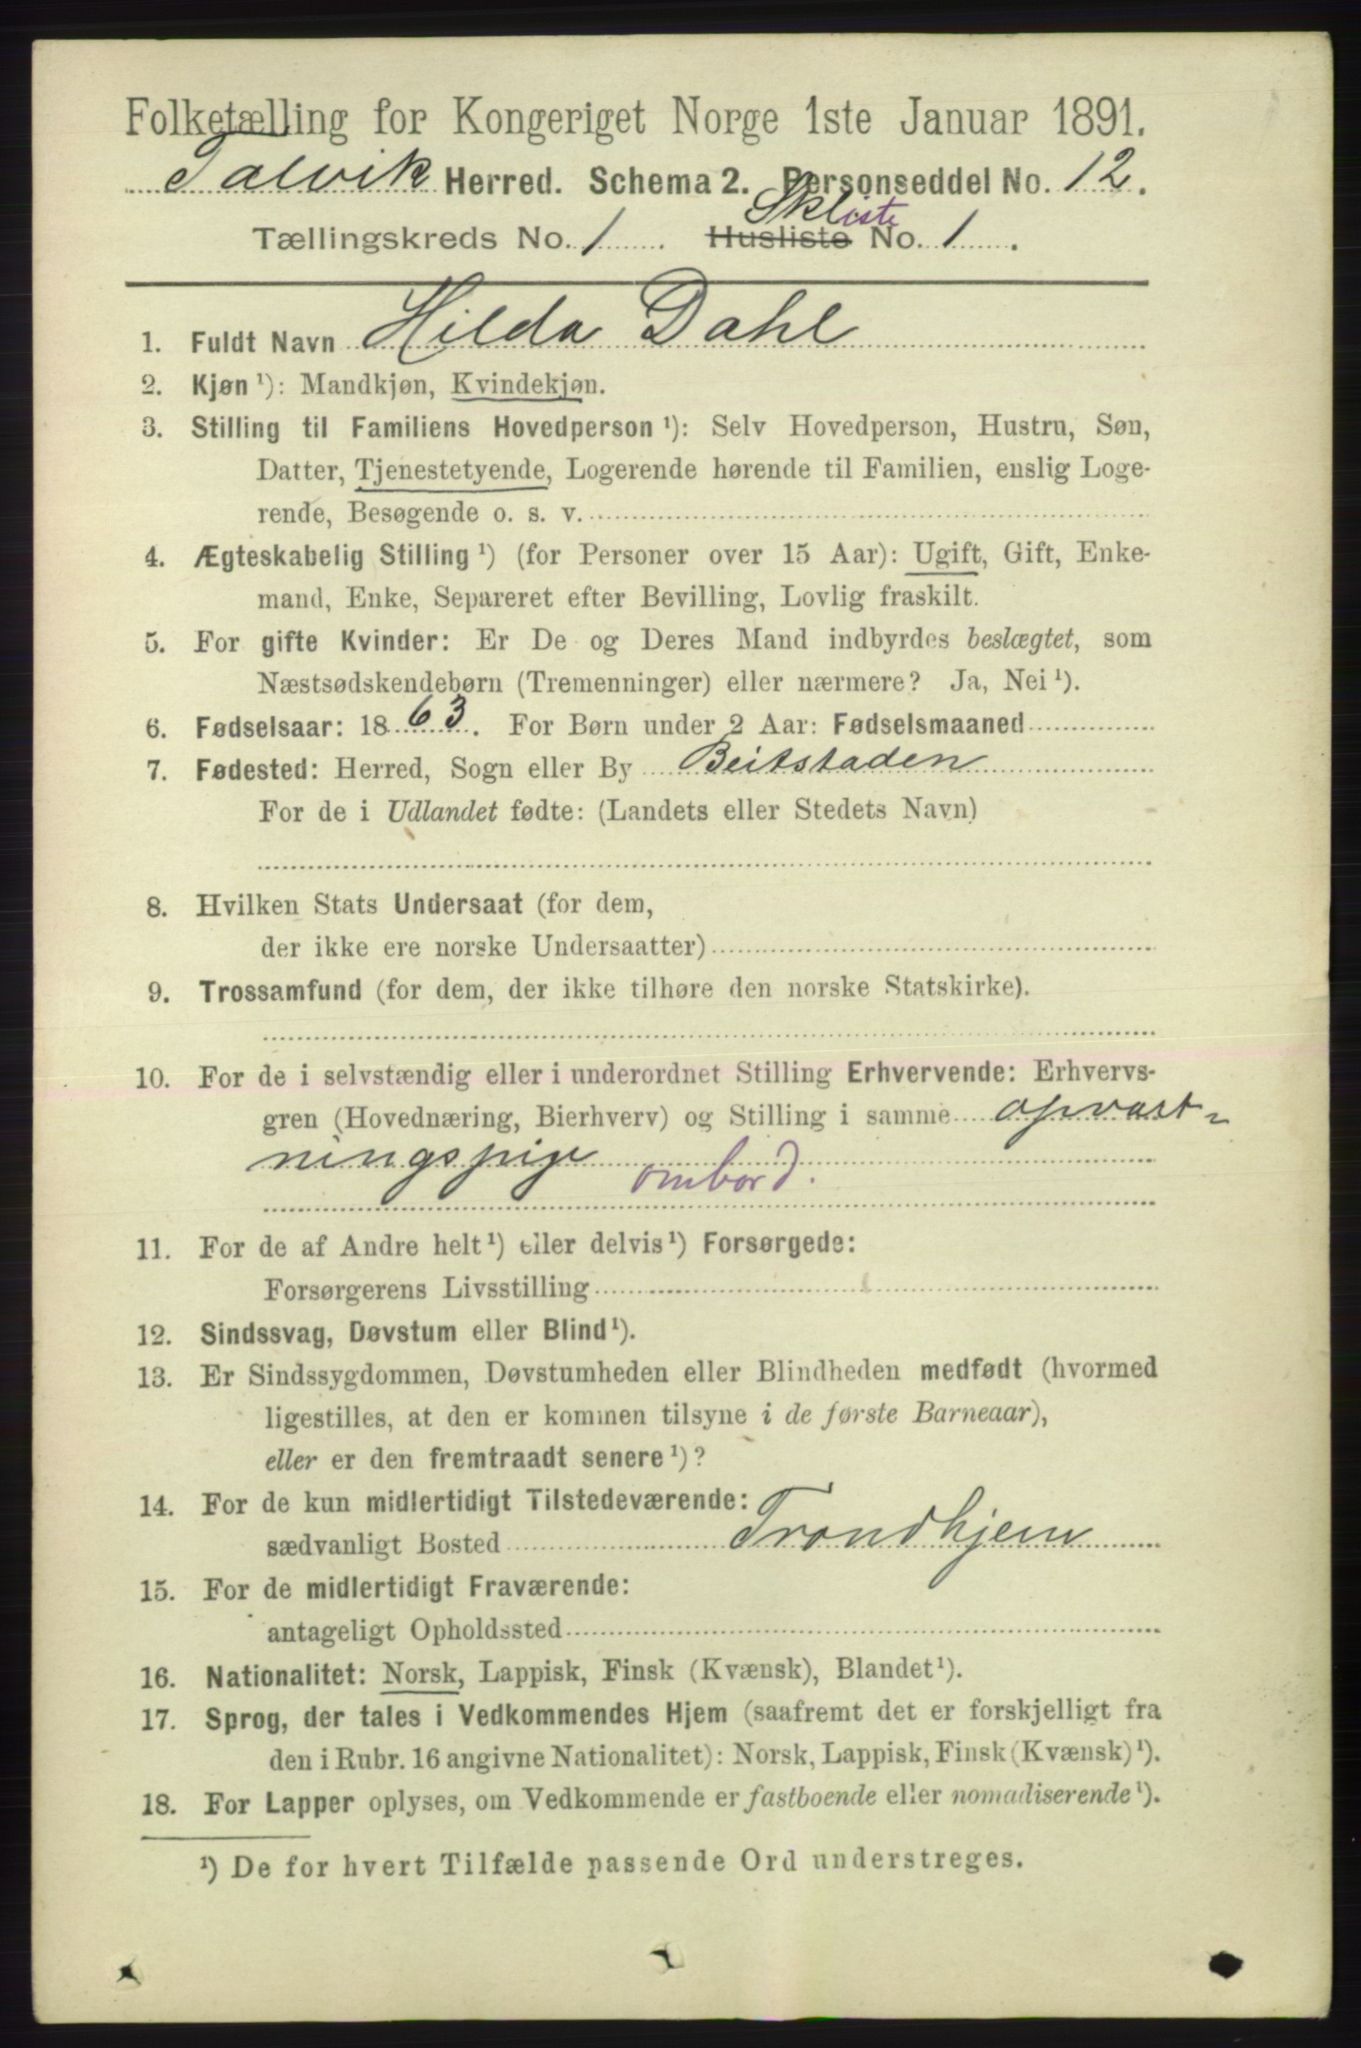 Folketælling for Kongeriget Norge 1ste Januar 1891.
Talvik Herred. Schema 2. Personseddel No. 12.
Skliste
Tællingskreds No. 1. Husliste No. 1.
1. Fuldt Navn Hilda Dahl
2. Kjøn ¹): Mandkjøn, Kvindekjøn.
3. Stilling til Familiens Hovedperson ¹): Selv Hovedperson, Hustru, Søn,
Datter, Tjenestetyende, Logerende hørende til Familien, enslig Loge-
rende, Besøgende o. s. v.
4. Ægteskabelig Stilling ¹) (for Personer over 15 Aar): Ugift, Gift, Enke-
mand, Enke, Separeret efter Bevilling, Lovlig fraskilt.
5. For gifte Kvinder: Er De og Deres Mand indbyrdes beslægtet, som
Næstsødskendebørn (Tremenninger) eller nærmere? Ja, Nei ¹).
6. Fødselsaar: 1863. For Børn under 2 Aar: Fødselsmaaned
7. Fødested: Herred, Sogn eller By Beitstaden
For de i Udlandet fødte: (Landets eller Stedets Navn)
8. Hvilken Stats Undersaat (for dem,
der ikke ere norske Undersaatter)
9. Trossamfund (for dem, der ikke tilhøre den norske Statskirke).
10. For de i selvstændig eller i underordnet Stilling Erhvervende: Erhvervs-
gren (Hovednæring, Bierhverv) og Stilling i samme opvart-
ningspige ombord.
11. For de af Andre helt ¹) eller delvis ¹) Forsørgede:
Forsørgerens Livsstilling
12. Sindssvag, Døvstum eller Blind ¹).
13. Er Sindssygdommen, Døvstumheden eller Blindheden medfødt (hvormed
ligestilles, at den er kommen tilsyne i de første Barneaar),
eller er den fremtraadt senere ¹)?
14. For de kun midlertidigt Tilstedeværende:
sædvanligt Bosted Trondhjem
15. For de midlertidigt Fraværende:
antageligt Opholdssted
16. Nationalitet: Norsk, Lappisk, Finsk (Kvænsk), Blandet ¹).
17. Sprog, der tales i Vedkommendes Hjem (saafremt det er forskjelligt fra
den i Rubr. 16 angivne Nationalitet): Norsk, Lappisk, Finsk (Kvænsk) ¹).
18. For Lapper oplyses, om Vedkommende er fastboende eller nomadiserende ¹).
¹) De for hvert Tilfælde passende Ord understreges.